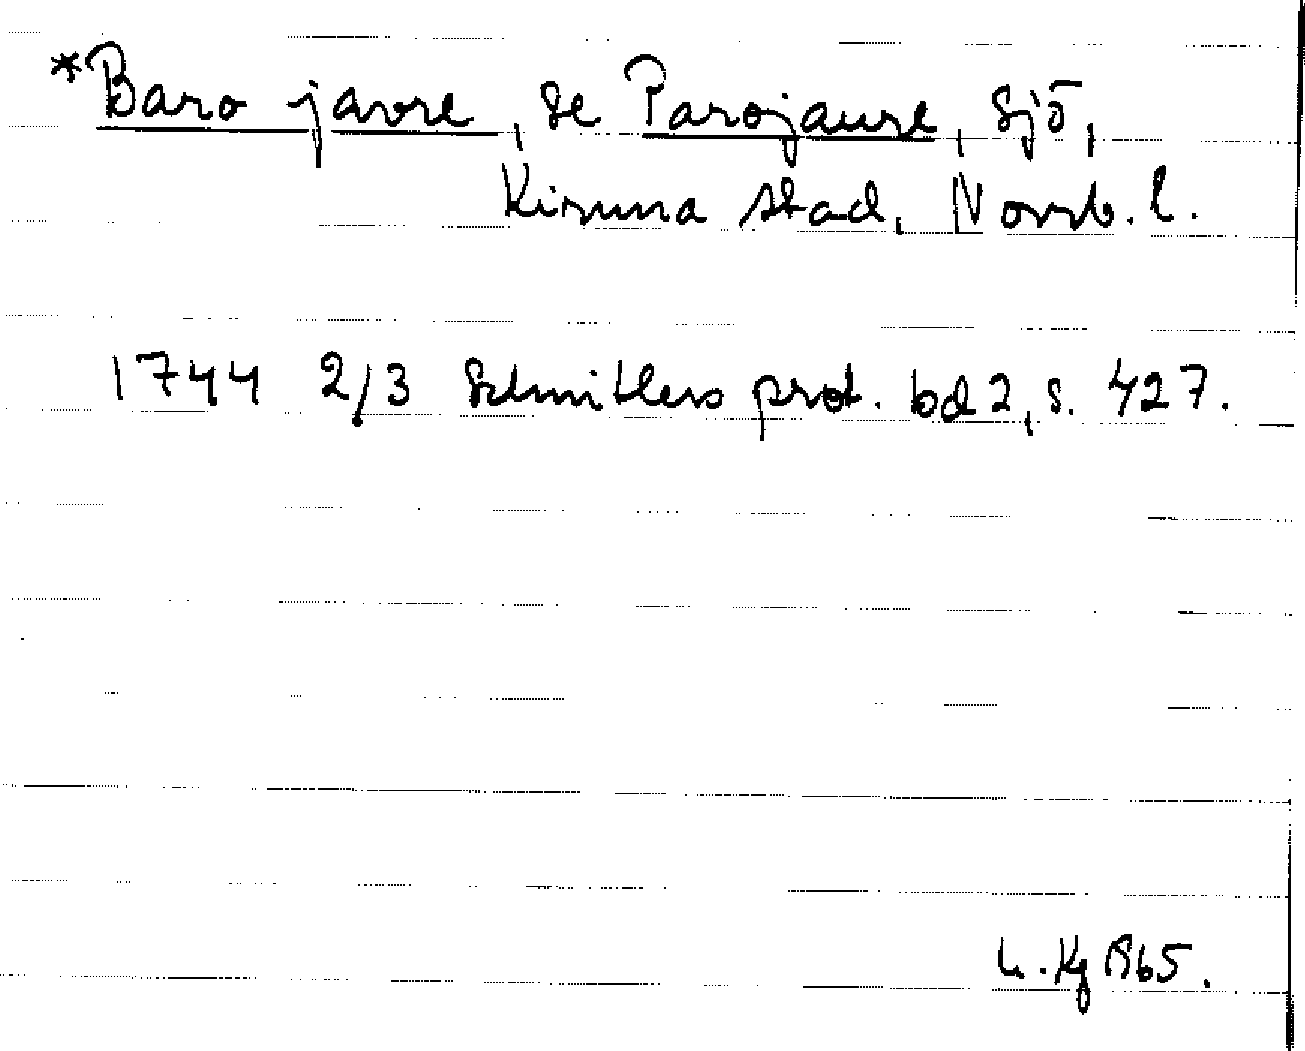 *Baro javre, se Parojaure, sjö,
Kiruna stad, Norrb. l.
1744 2/3 Schnitlers prot. bd 2, s. 427.